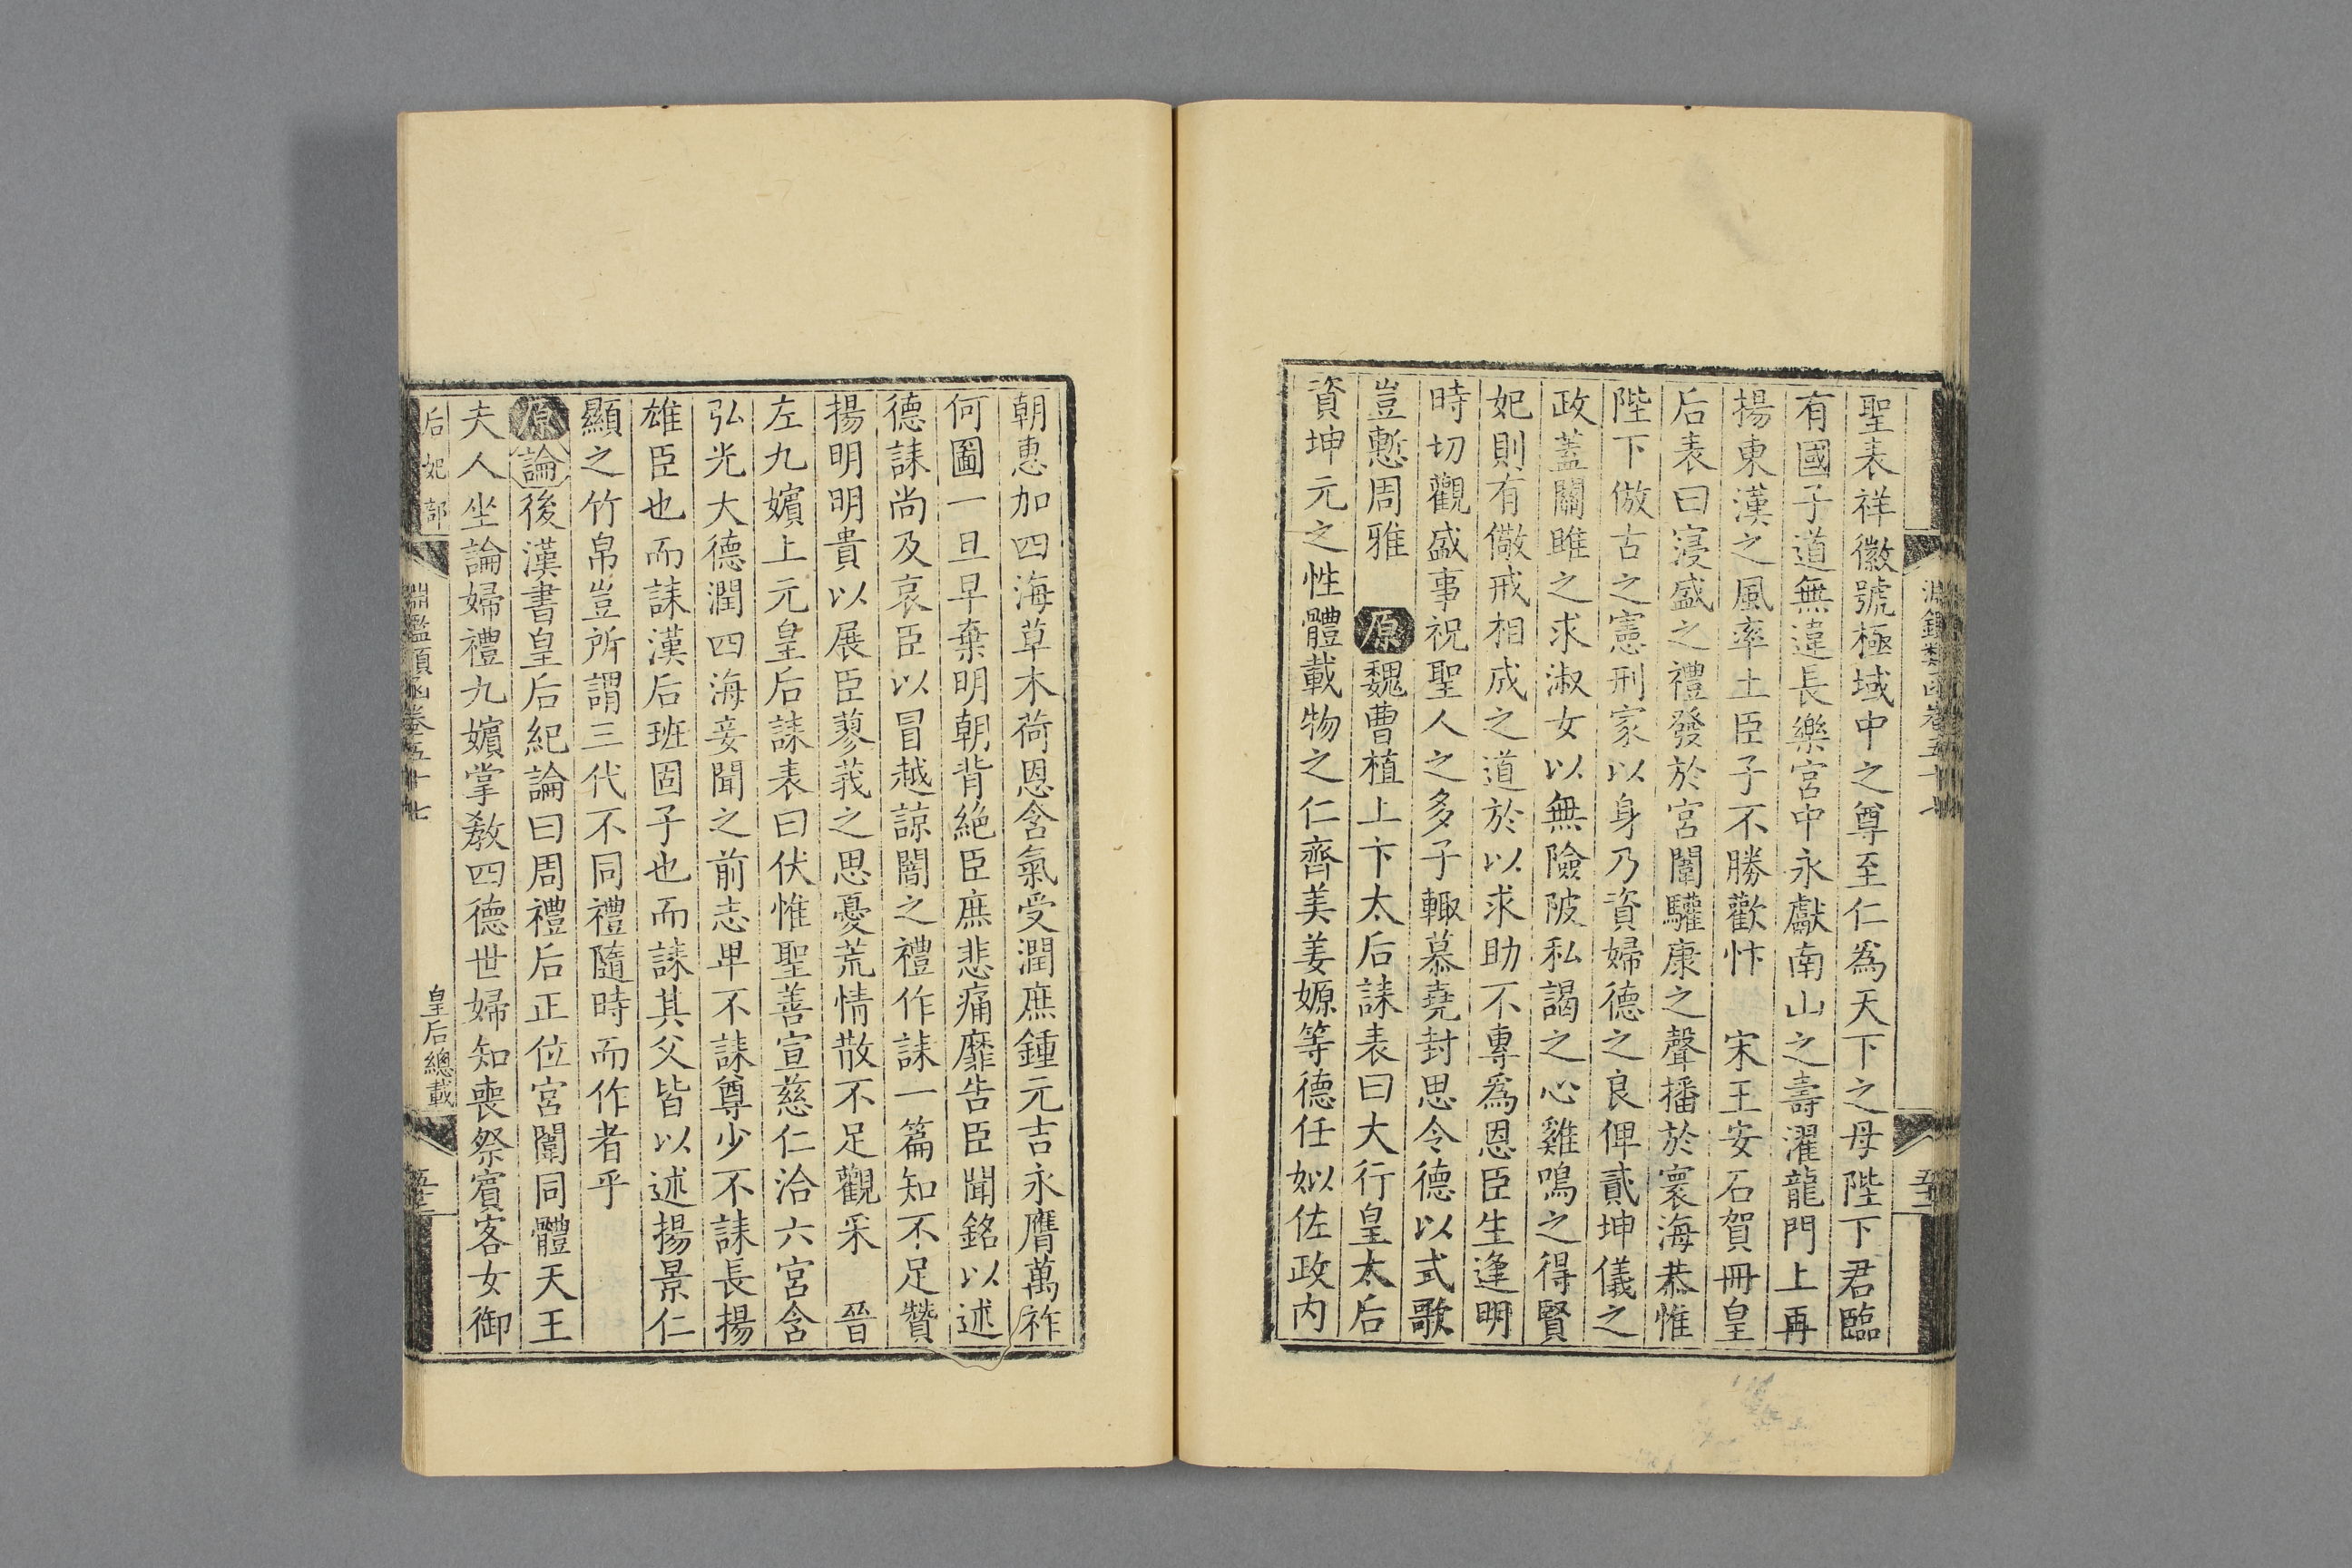 聖表祥徽號極域中之尊至仁爲天下之母陛下君臨
有國子道無違長樂宮中永獻南山之壽濯龍門上再
揚東漢之風率土臣子不勝歡忭　宋王安石賀冊皇
后表曰寖盛之禮發於宮闈驩康之聲播於寰海恭惟
陛下倣古之憲刑家以身乃資婦德之良俾貳坤儀之
政蓋關雎之求淑女以無險陂私謁之心雞鳴之得賢
妃則有儆戒相成之道於以求助不專爲恩臣生逢明
時切觀盛事祝聖人之多子輙慕堯封思令德以式歌
豈慙周雅　原魏曹植上卞太后誄表曰大行皇太后
資坤元之性體載物之仁齊美姜嫄等德任姒佐政內
朝惠加四海草木荷恩含氣受潤庶鍾元吉永膺萬祚
何圖一旦早棄明朝背絕臣庶悲痛靡告臣聞銘以述
德誄尚及哀臣以冒越諒闇之禮作誄一篇知不足贊
揚明明貴以展臣蓼莪之思憂荒情散不足觀采　晉
左九嬪上元皇后誄表曰伏惟聖善宣慈仁洽六宮含
弘光大德潤四海妾聞之前志卑不誄尊少不誄長揚
雄臣也而誄漢后班固子也而誄其父皆以述揚景仁
顯之竹帛豈所謂三代不同禮隨時而作者乎
原論後漢書皇后紀論曰周禮后正位宮闈同體天王
夫人坐論婦禮九嬪掌敎四德世婦知喪祭賓客女御
后妃部　淵鑑類函卷五十七　皇后總載